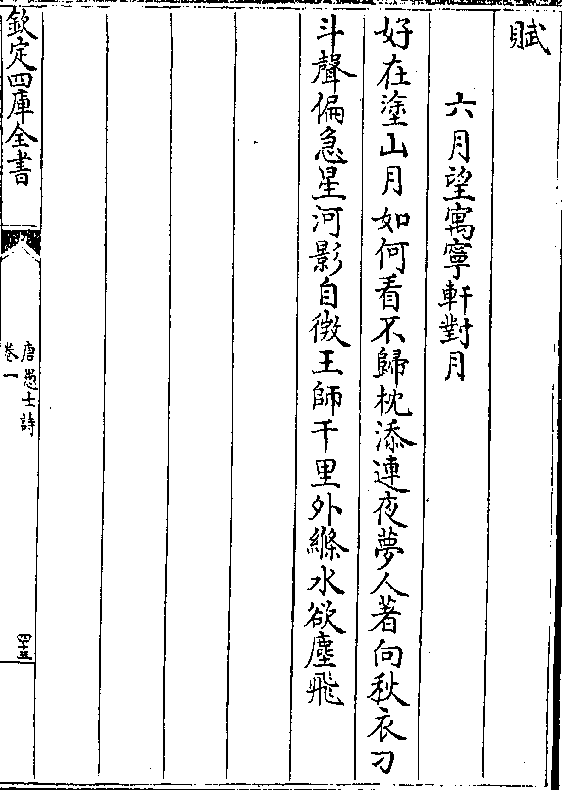 賦
六月望寓寧軒對月
好在塗山月如何看不歸枕添連夜夢人著向秋衣刁
斗聲偏急星河影自微王師千里外縧水欲塵飛
欽定四庫全書
唐愚士詩
卷一
四十五